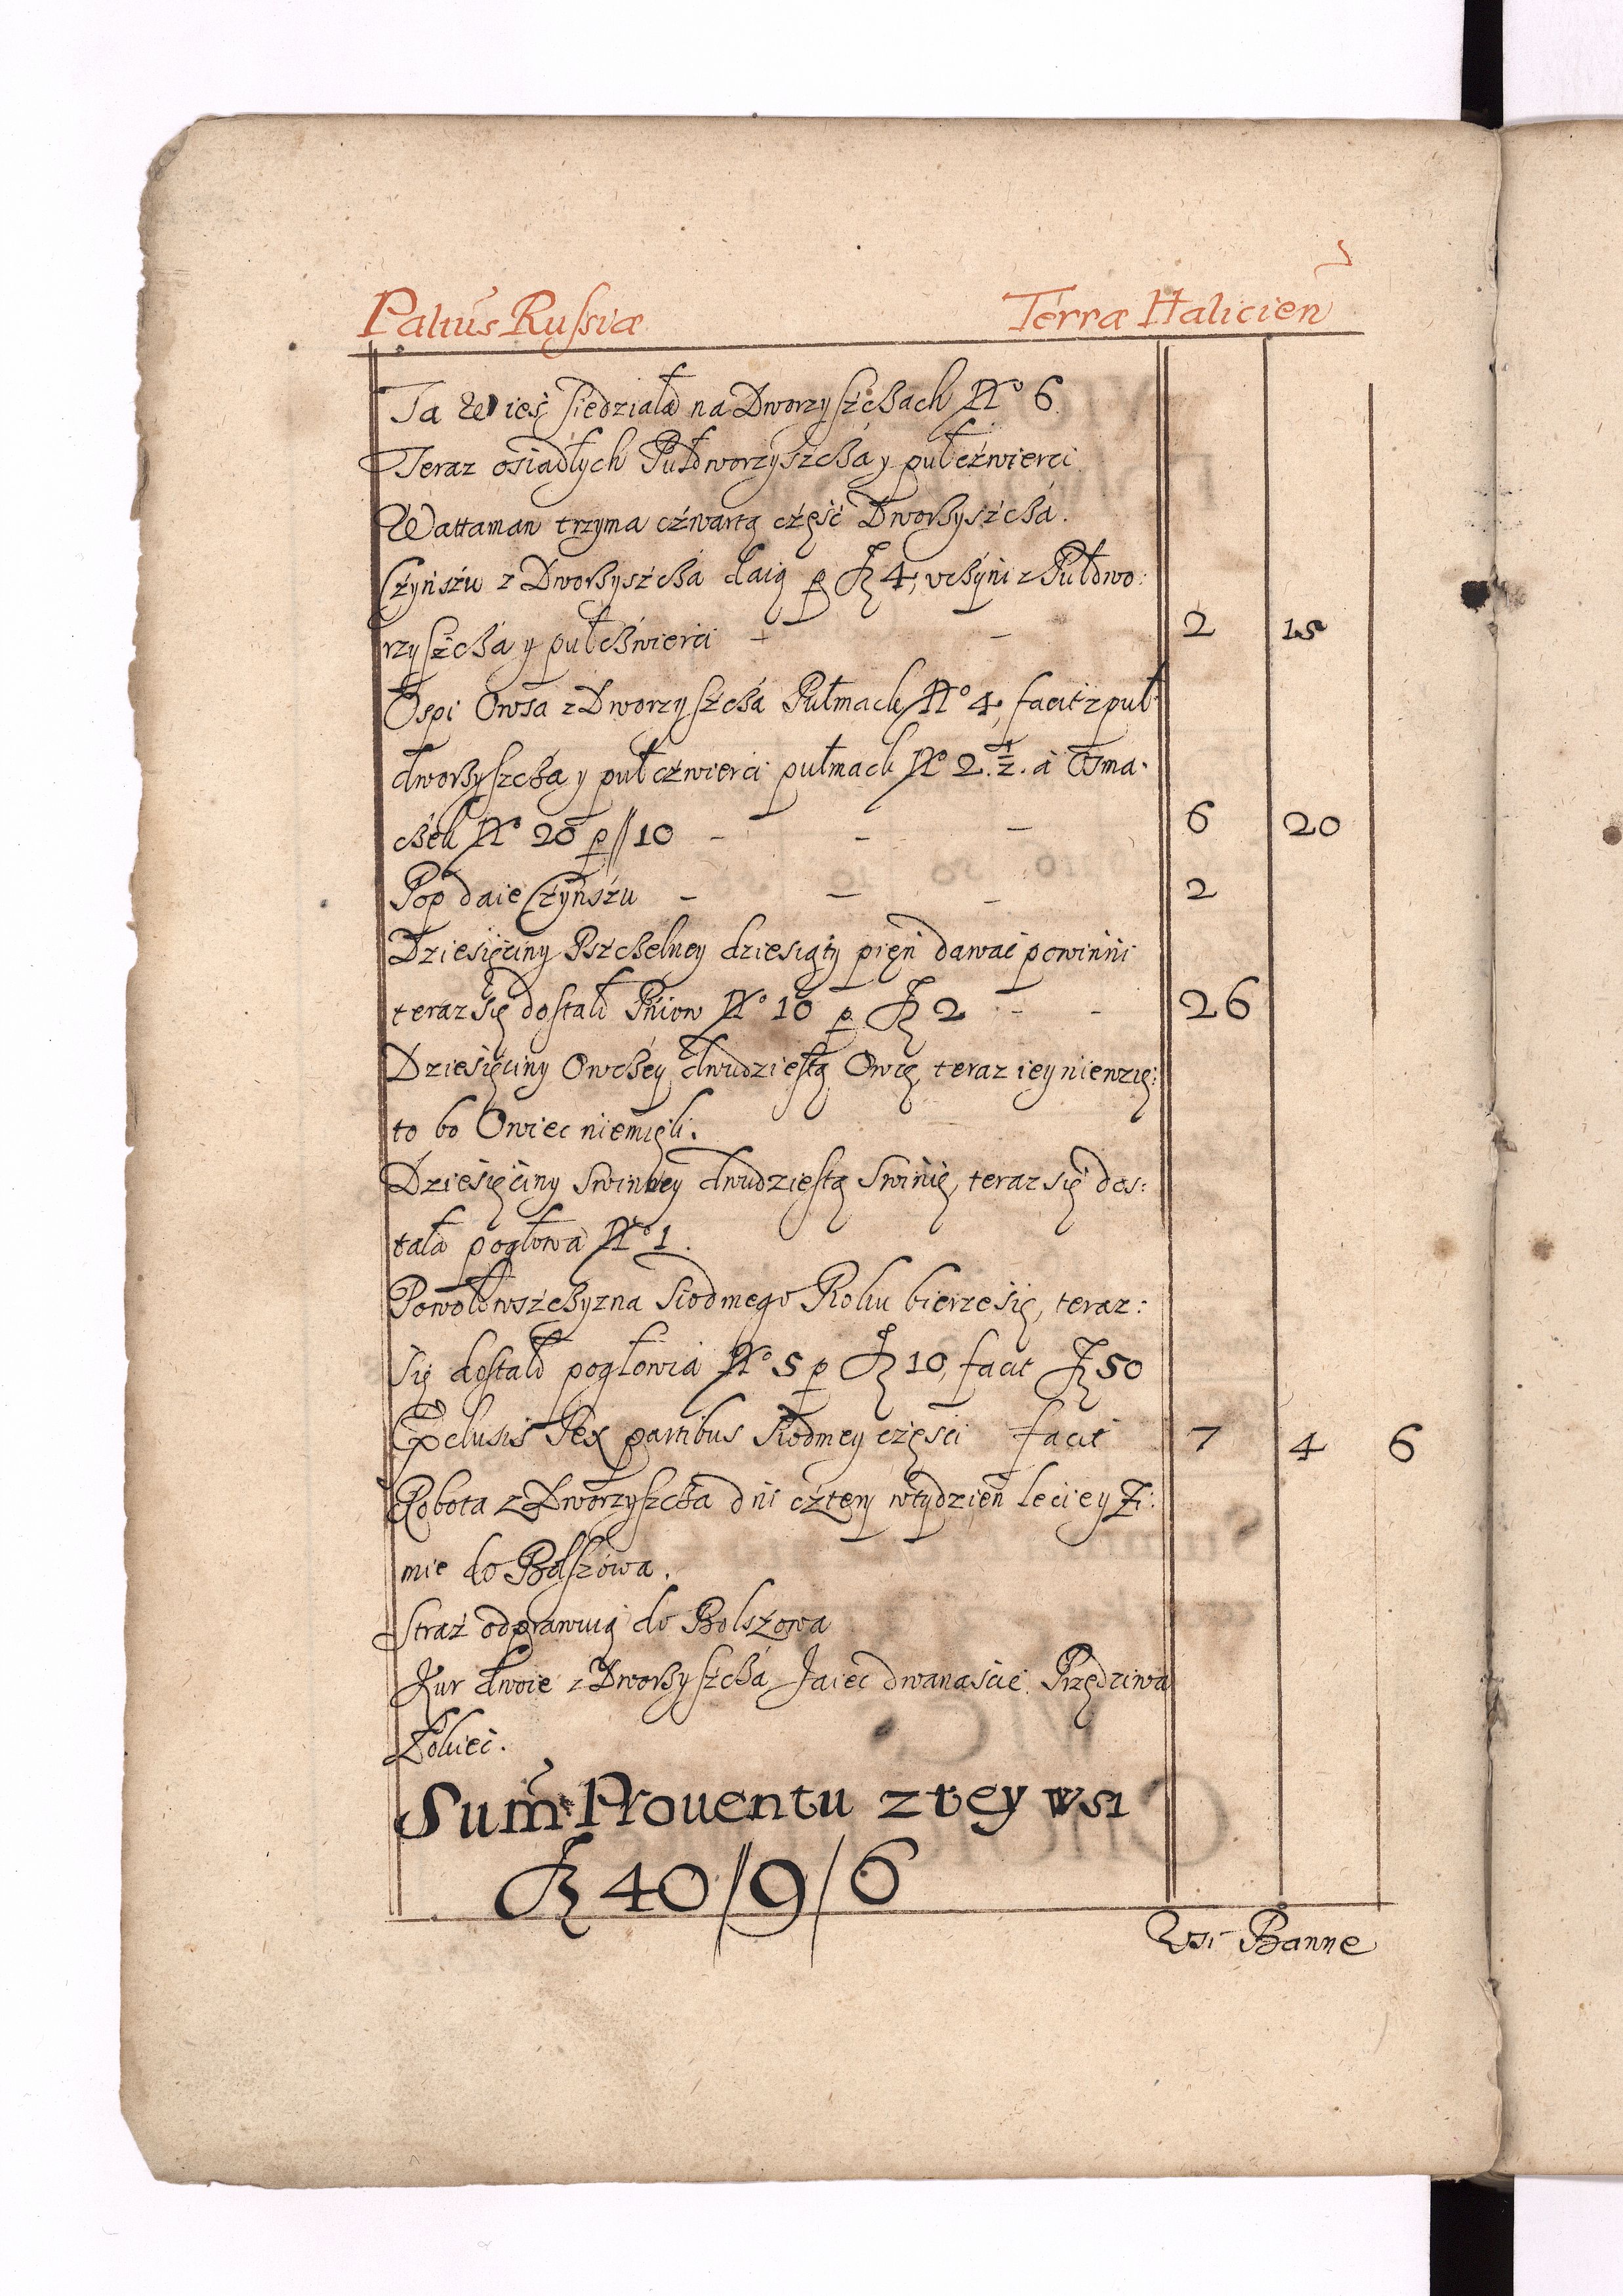 Paltus Russiæ Terræ Halicien
Ta Wieś siedziała na Dworzyszczach No 6
Teraz osiadłych Pułdworzyszcza y pułczwierci
Wattaman trzyma czwartą część Dworzyszcza.
Czynszu z Dworzyszcza daią p fl 4, uczyni z Pułdwo:
rzyszcza y pułczwierci - - 2 15
Ospi Owsa z Dworzyszcza Pułmack No 4, facit z puł
dworzyszcza y pułczwierci pułmack No 2. 1/2. a Osma.
czek No 20 p // 10 - - - 6 20
Pop daie Czynszu - - - 2
Dziesięciny Pszczelney dziesiąty pień dawać powinni
teraz się dostało Pniow No 13 p fl 2 - - 26
Dziesięciny Owczey dwudziestą Owcę, teraz iey niewzię:
to bo Owiec niemieli.
Dziesięciny Swinney dwudziestą Swinię, teraz się dos:
tała pogłowa No 1.
Powołowszczyzna Siodmego Roku bierze się, teraz:
się dostało pogłowia No 5 p fl 10, facit fl 50
Exclusis Sex partibus Siodmey części facit 7 4 6
Robota z Dworzyszcza dni cztery w tydzień lecie y Zi:
mie do Bolszowa.
Straż odprawuią do Bolszowa
Kur dwoie z Dworzyszcza, Jaiec dwanaście. Przędziwa
Łokieć.
Sum̃ Prouentu z tey wsi
fl 40 // 9 / 6
Wsi Banne